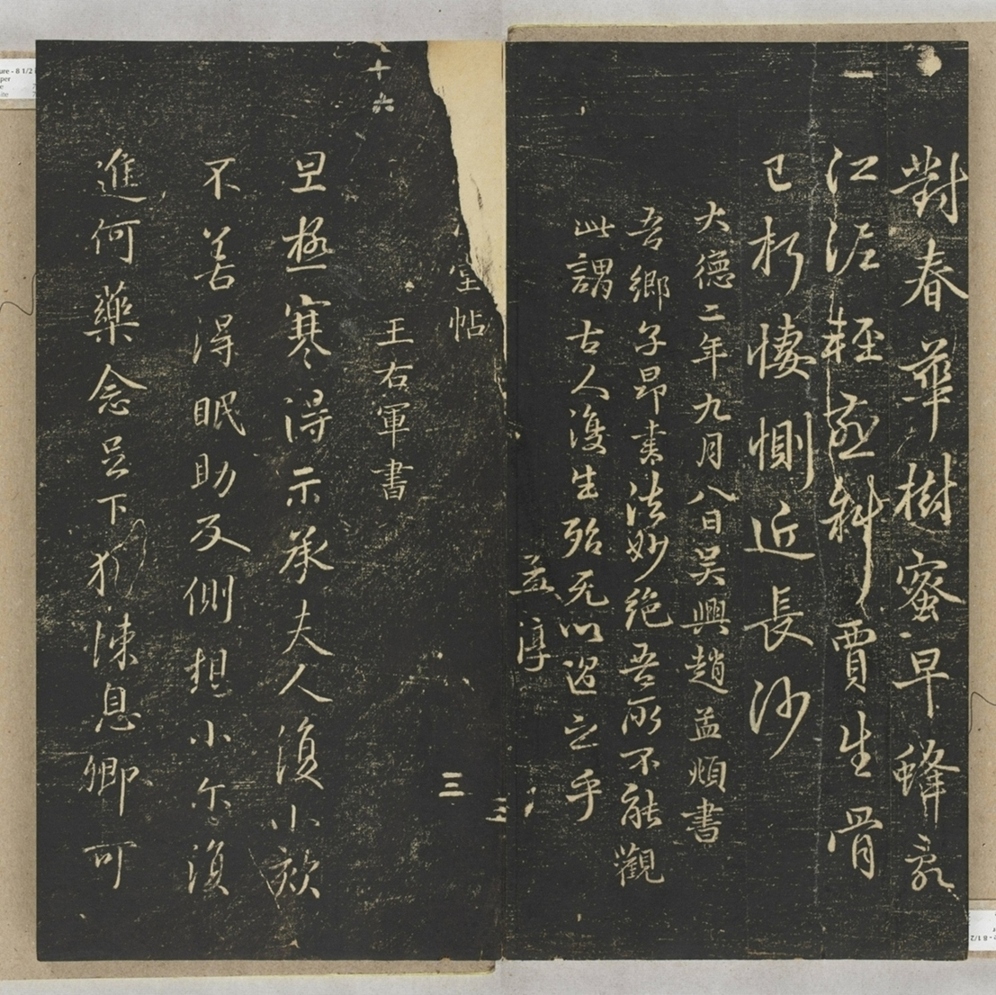 對春華樹蜜早蜂亂
江泥輕燕斜賈生骨
已朽悽惻近長沙
大德二年九月八日吳興趙孟頫書
吾鄉子昂書法妙絕吾所不能觀
此謂古人復生殆无以過之乎
孟淳
三
堂帖
三
十六
王右軍書
旦極寒得示承夫人復小欬
不善得眠助反側想小尓復
進何藥念足下猶悚息卿可